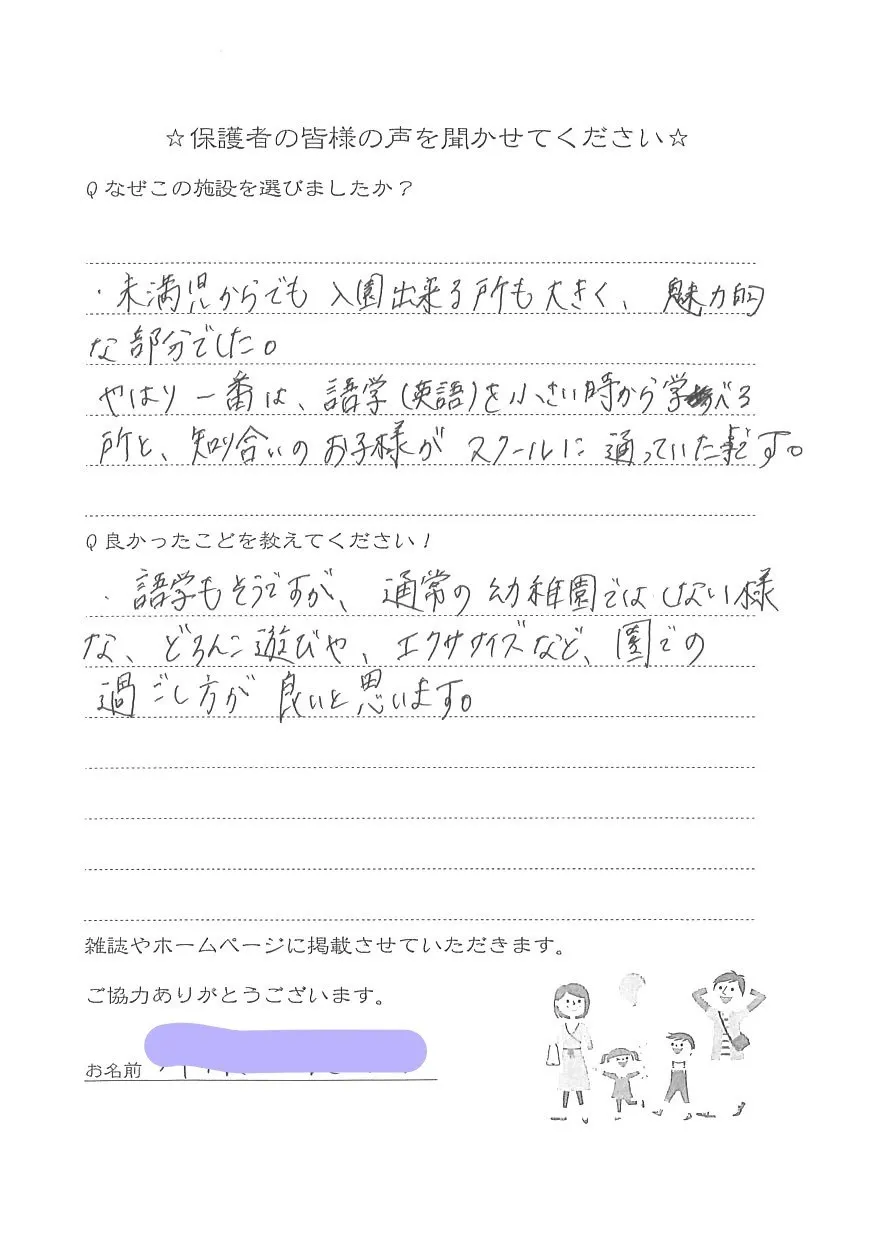 ☆保護者の皆様の声を聞かせてください☆
Qなぜこの施設を選びましたか？
・未満児からでも入園出来る所も大きく、魅力的
な部分でした。
やはり一番は、語学(英語)を小さい時から学べる
所と、知り合いのお子様がスクールに通っていた事です。
Q良かったことを教えてください！
・語学もそうですが、通常の幼稚園ではしない様
な、どろんこ遊びや、エクササイズなど、園での
過ごし方が良いと思います。
雑誌やホームページに掲載させていただきます。
ご協力ありがとうございます。
お名前